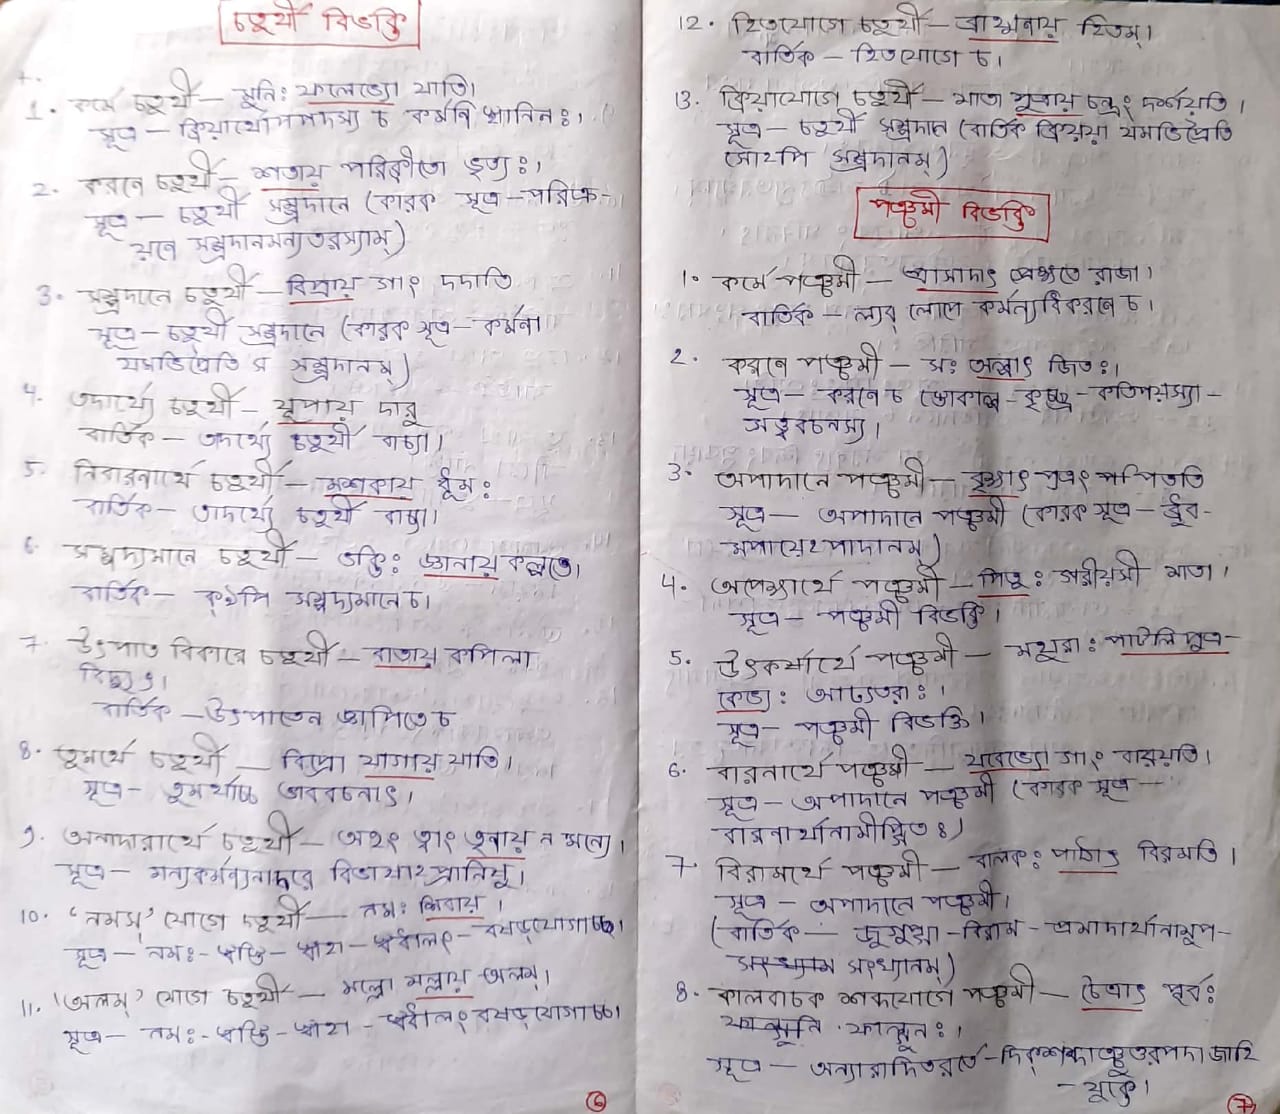 চতুর্থী বিভক্তি
1. কর্মে চতুর্থী — মুনিঃ ফলেভ্যো যাতি।
সূত্র — ক্রিয়ার্থোপপদস্য চ কর্মণি স্থানিনঃ।
2. করনে চতুর্থী — শতায় পরিক্রীতো ভৃত্যঃ।
সূত্র — চতুর্থী সম্প্রদানে (কারক সূত্র — পরিক্র
য়নে সম্প্রদানমন্যতরস্যাম্)
3. সম্প্রদানে চতুর্থী — বিপ্রায় গাং দদাতি
সূত্র — চতুর্থী সম্প্রদানে (কারক সূত্র — কর্মনা
যমভিপ্রৈতি স সম্প্রদানম্)
4. তদার্থ্যে চতুর্থী — যূপায় দারু
বার্তিক — তদর্থ্যে চতুর্থী বাচ্যা।
5. নিবারনার্থে চতুর্থী — মশকায় ধূমঃ
বার্তিক — তাদর্থ্যে চতুর্থী বাচ্যা।
6. সম্পদ্যমানে চতুর্থী — ভক্তিঃ জ্ঞানায় কল্পতে।
বার্তিক — ক্৯পি সম্পদ্যমানে চ।
7. উৎপাত বিকারে চতুর্থী — বাতায় কপিলা
বিদ্যুৎ।
বার্তিক — উৎপাতেন জ্ঞাপিতে চ
8. তুমর্থে চতুর্থী — বিপ্রো যাগায় যাতি।
সূত্র — তুমর্থাচ্চ ভাববচনাৎ।
9. অনাদারার্থে চতুর্থী — অহং ত্বাং তৃনায় ন মন্যে।
সূত্র — মন্যকর্মণ্যনাদরে বিভাষাঽপ্রানিষু।
10. ‘নমস্’ যোগে চতুর্থী — নমঃ শিবায়।
সূত্র — নমঃ - স্বস্তি - স্বাহা - স্বধালং - বষড্‌যোগাচ্চ।
11. ‘অলম্’ যোগে চতুর্থী — মল্লো মল্লায় অলম্।
সূত্র — নমঃ - স্বস্তি - স্বাহা - স্বধালং বষড্‌যোগাচ্চ।
6
12. হিতযোগে চতুর্থী — ব্রাহ্মণায় হিতম্।
বার্তিক — হিতযোগে চ।
13. ক্রিয়াযোগে চতুর্থী — মাতা পুত্রায় চন্দ্রং দর্শয়তি।
সূত্র — চতুর্থী সম্প্রদানে (বার্তিক ক্রিয়য়া যমভিপ্রৈতি
সোঽপি সম্প্রদানম্)
পঞ্চমী বিভক্তি
1. কর্মে পঞ্চমী — প্রাসাদাৎ প্রেক্ষতে রাজা।
বার্তিক — ল্যব্ লোপে কর্মন্যধিকরনে চ।
2. করনে পঞ্চমী — সঃ অল্পাৎ জিতঃ।
সূত্র — করনে চ স্তোকাল্প - কৃচ্ছ্র - কতিপয়স্যা -
সত্ত্ববচনস্য।
3. অপাদানে পঞ্চমী — বৃক্ষাৎ পত্রং পপিততি
সূত্র — অপাদানে পঞ্চমী (কারক সূত্র — ধ্রুব -
মপায়েঽপাদানম্)
4. অপেক্ষার্থে পঞ্চমী — পিতুঃ গরীয়সী মাতা।
সূত্র — পঞ্চমী বিভক্তি।
5. উৎকর্ষার্থে পঞ্চমী — মথুরাঃ পাটলিপুত্র -
কেভ্যঃ আঢ্যতরাঃ।
সূত্র — পঞ্চমী বিভক্তি।
6. বারনার্থে পঞ্চমী — যবেভ্যো গাং বারয়তি।
সূত্র — অপাদানে পঞ্চমী (কারক সূত্র —
বারনার্থানামীপ্সিতঃ)
7. বিরামার্থে পঞ্চমী — বালকঃ পাঠাৎ বিরমতি।
সূত্র — অপাদানে পঞ্চমী।
(বার্তিক — জুগুপ্সা - বিরাম - প্রমাদার্থানামুপ -
সংখ্যানম্)
8. কালবাচক শব্দযোগে পঞ্চমী — চৈত্রাৎ পূর্বঃ
ফাল্গুনঃ।
সূত্র — অন্যারাদিতরর্তে - দিক্‌শব্দাঞ্চুত্তরপদাজাহি
- যুক্তে।
7